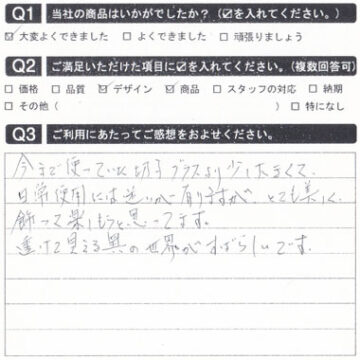 Q1 当社の商品はいかがでしたか?（☑を入れてください。）
☑ 大変よくできました □ よくできました □ 頑張りましょう
Q2 ご満足いただけた項目に☑を入れてください。（複数回答可）
□ 価格 □ 品質 ☑ デザイン ☑ 商品 □ スタッフの対応 □ 納期
□ その他（ ） □ 特になし
Q3 ご利用にあたってご感想をおよせください。
今まで使っていた切子グラスより少し大きくて、
日常使用には迷いが有りますが、とても美しく、
飾って楽しもうと思ってます。
透けて見える異の世界がすばらしいです。